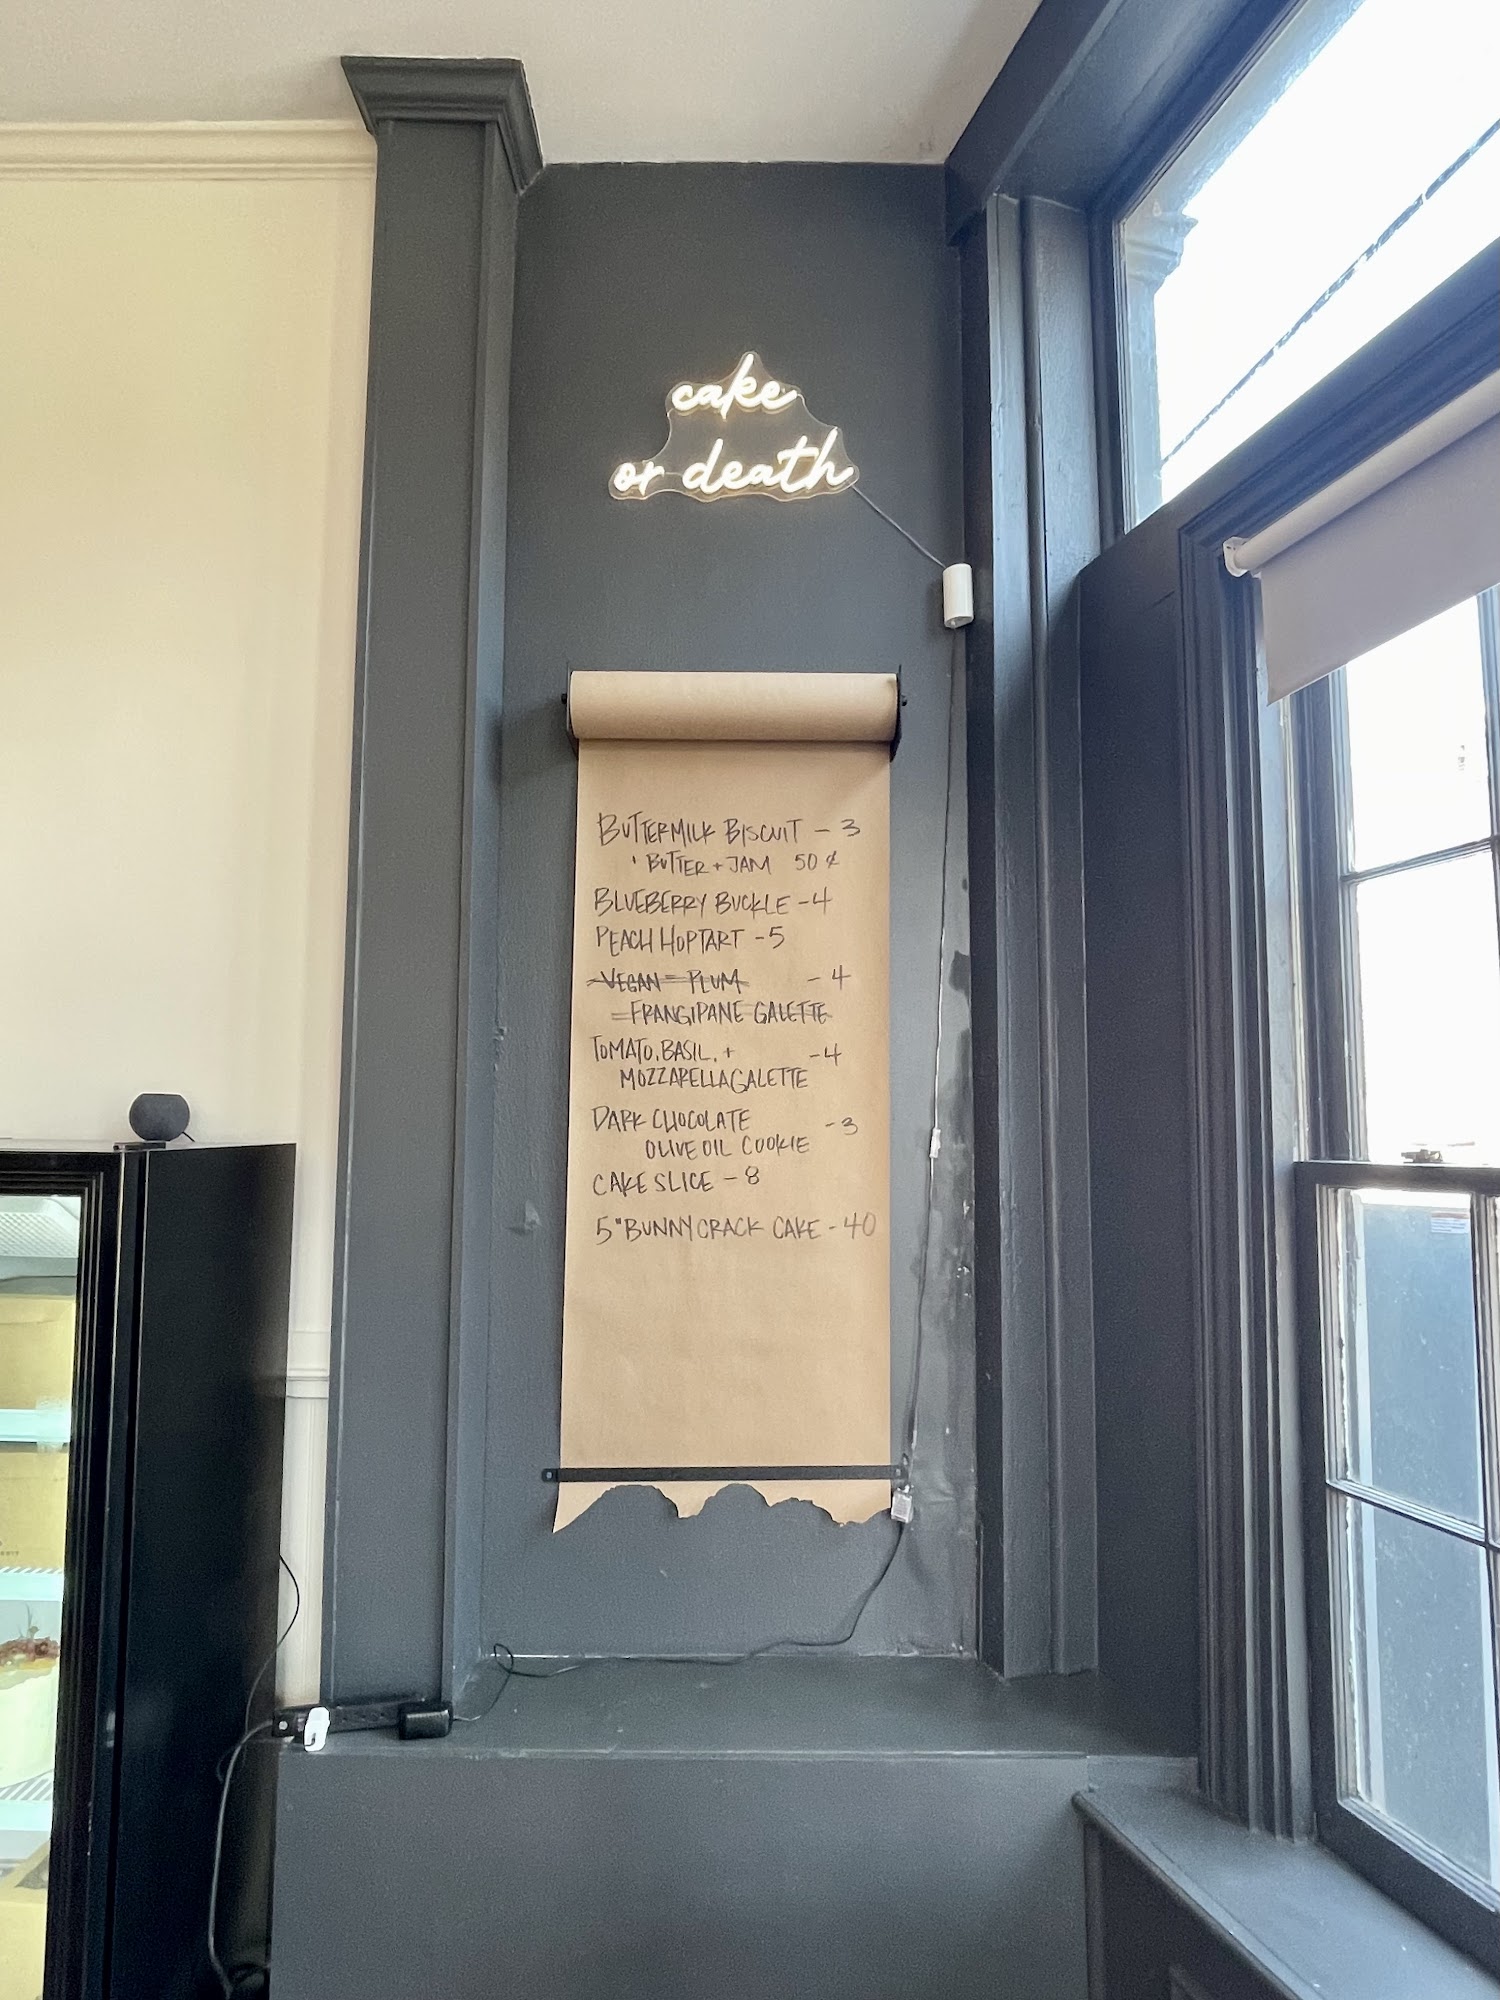 cake
or death
BUTTERMILK BISCUIT - 3
• BUTTER + JAM 50 ¢
BLUEBERRY BUCKLE - 4
PEACH HOPTART - 5
VEGAN PLUM - 4
FRANGIPANE GALETTE
TOMATO, BASIL, + - 4
MOZZARELLA GALETTE
DARK CHOCOLATE - 3
OLIVE OIL COOKIE
CAKE SLICE - 8
5" BUNNY CRACK CAKE - 40